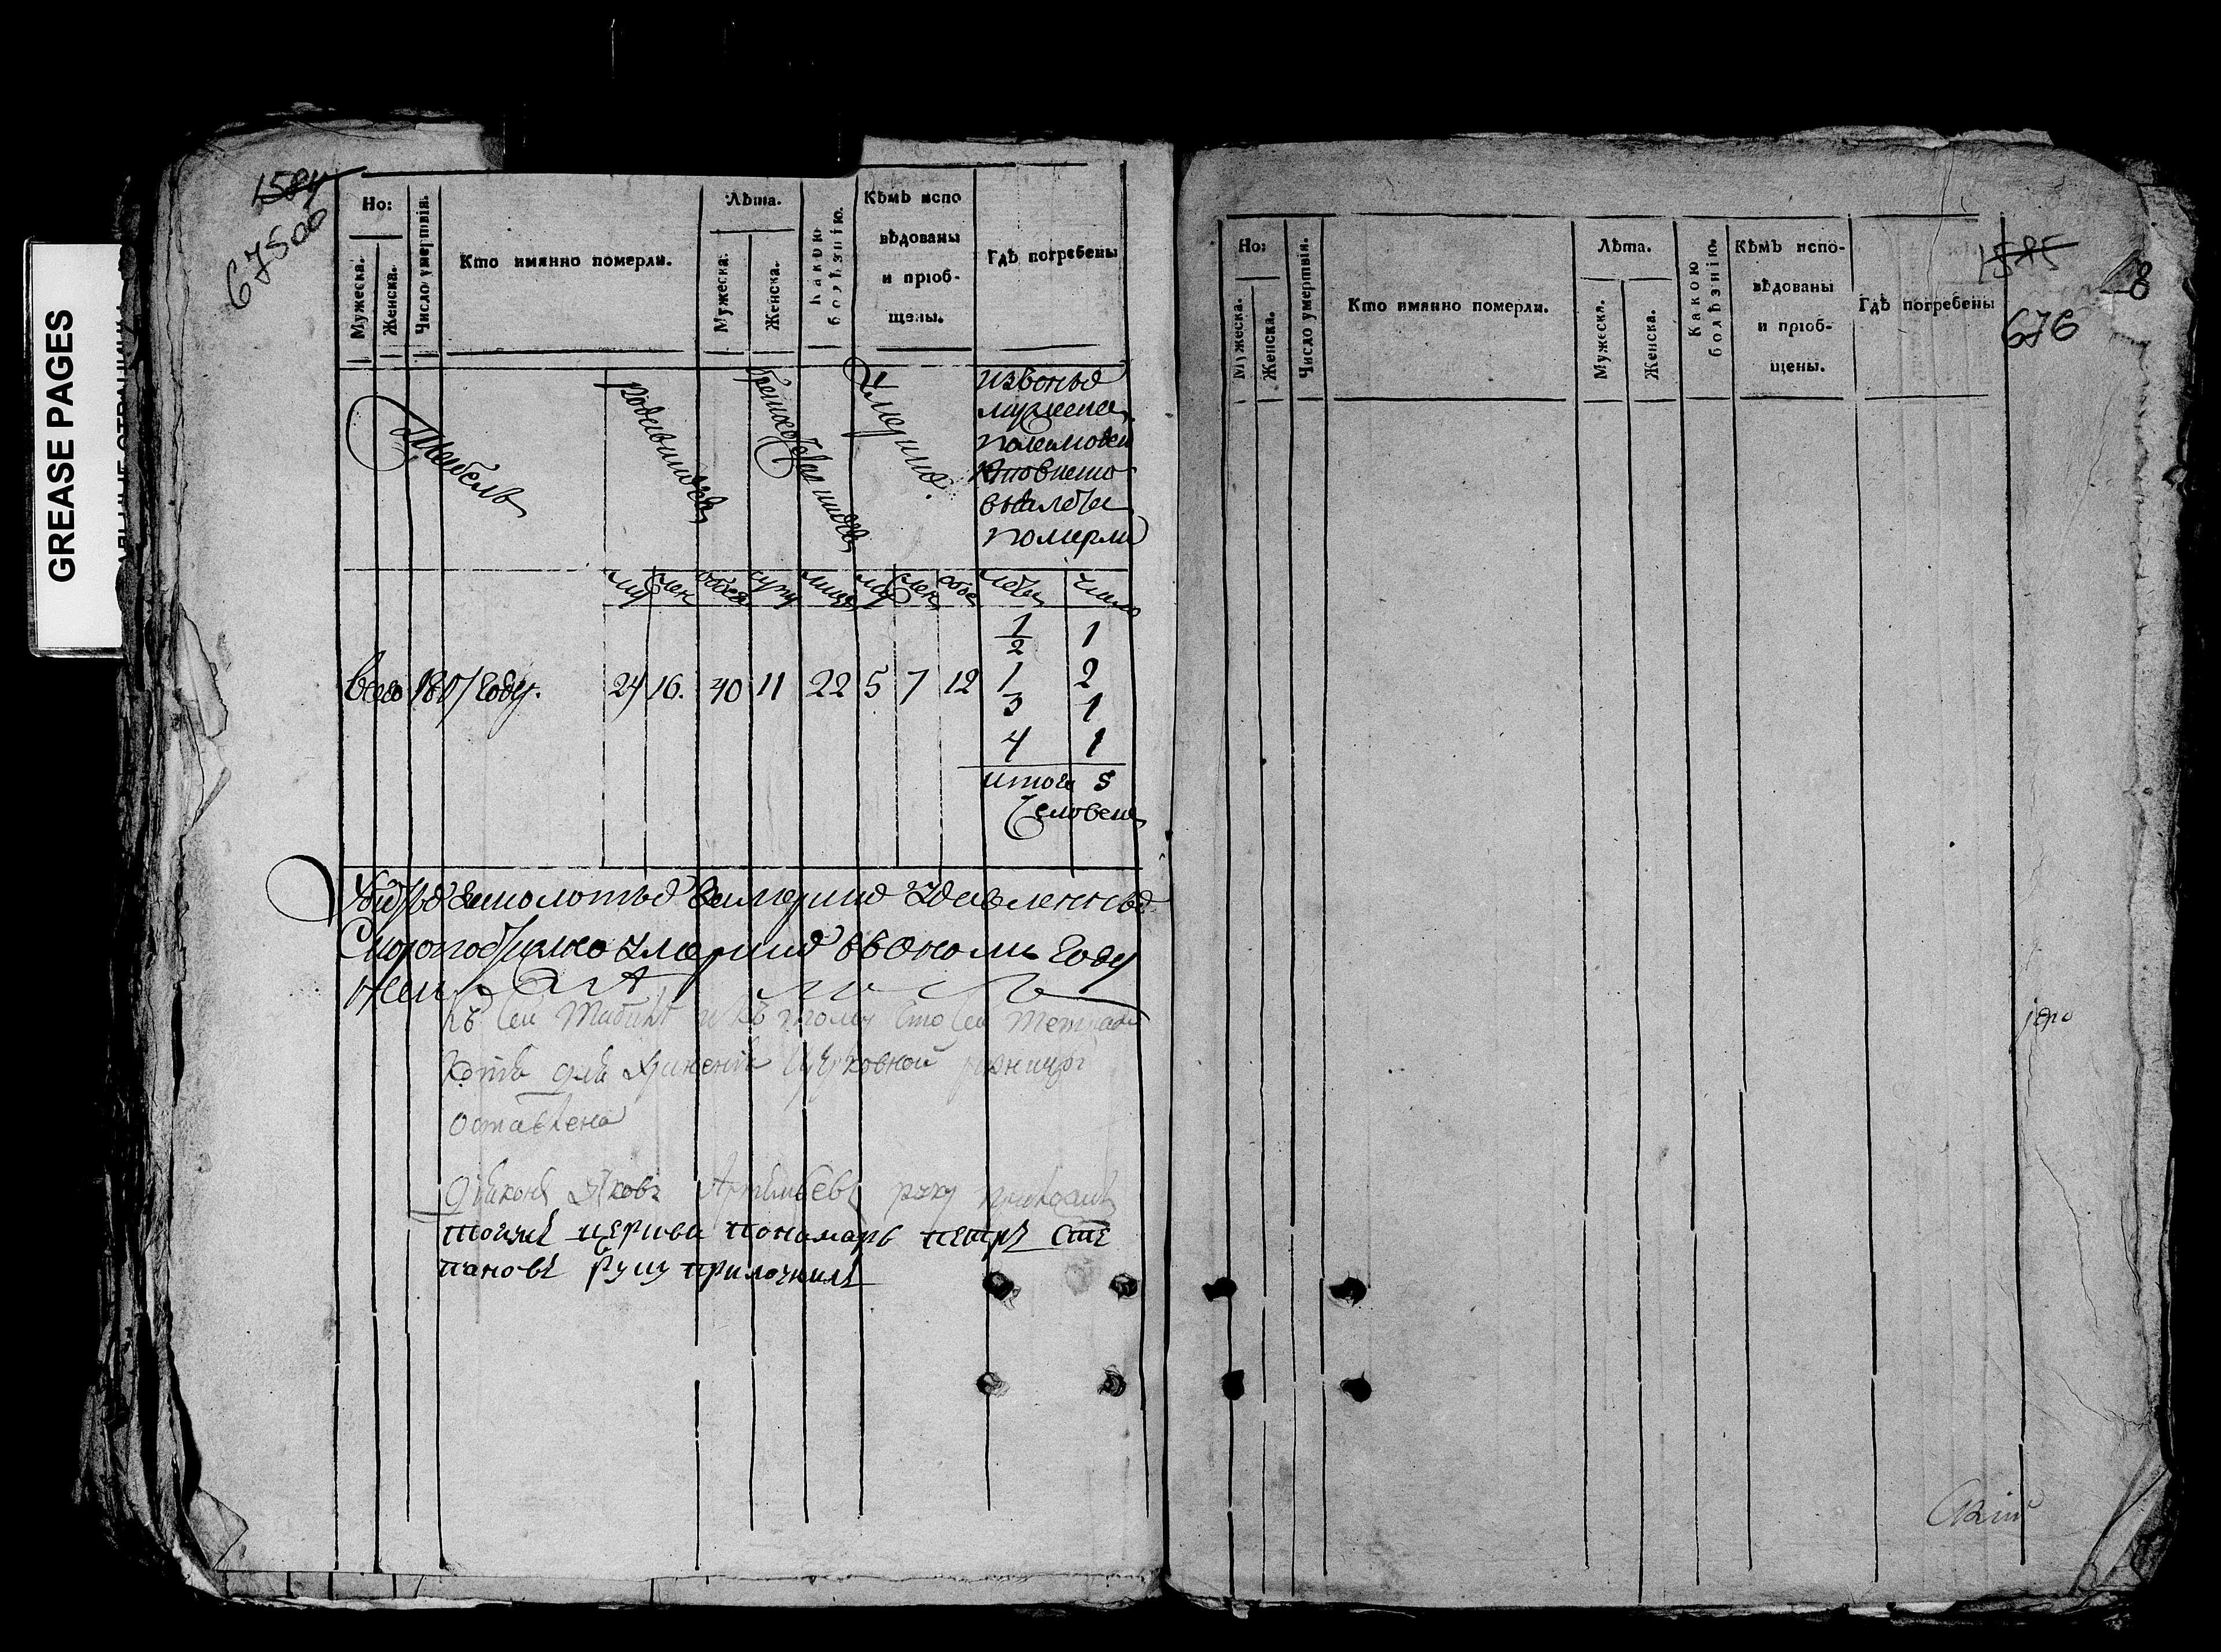 GREASE PAGES
1584
675об
Но:
Мужеска.
Женска.
Число умертвія.
Кто имянно померли.
Лѣта.
Мужеска.
Женска.
Какою болѣзнію.
Кѣмъ испо
вѣдованы
и пріоб-
щены.
Гдѣ погребены
Табель
родившихся
бракосочетавшихся
умершихъ
изъ оныхъ
мужеска
пола моложе
помѣрли
му
жен
обоего
супру
лицъ
му
жен
обое
лѣты
число
всего 1817 году.
24
16.
40
11
22
5
7
12
1/2 1
1 2
3 1
4 1
итого 5
человекъ
скоропостижно умершихъ въ ономъ году
нетъ
Къ сей табели и въ томъ что сей тетради
копія для храненія церковной ризницы
оставлена
діяконъ Яковъ Артемьевъ руку приложилъ
тойже церкви пономарь петръ сте
пановъ руку приложилъ
Но:
Мужеска.
Женска.
Число умертвія.
Кто имянно померли.
Лѣта.
Мужеска.
Женска.
Какою болѣзнію.
Кѣмъ испо-
вѣдованы
и пріоб-
щены.
Гдѣ погребены
1585
8
676
іере